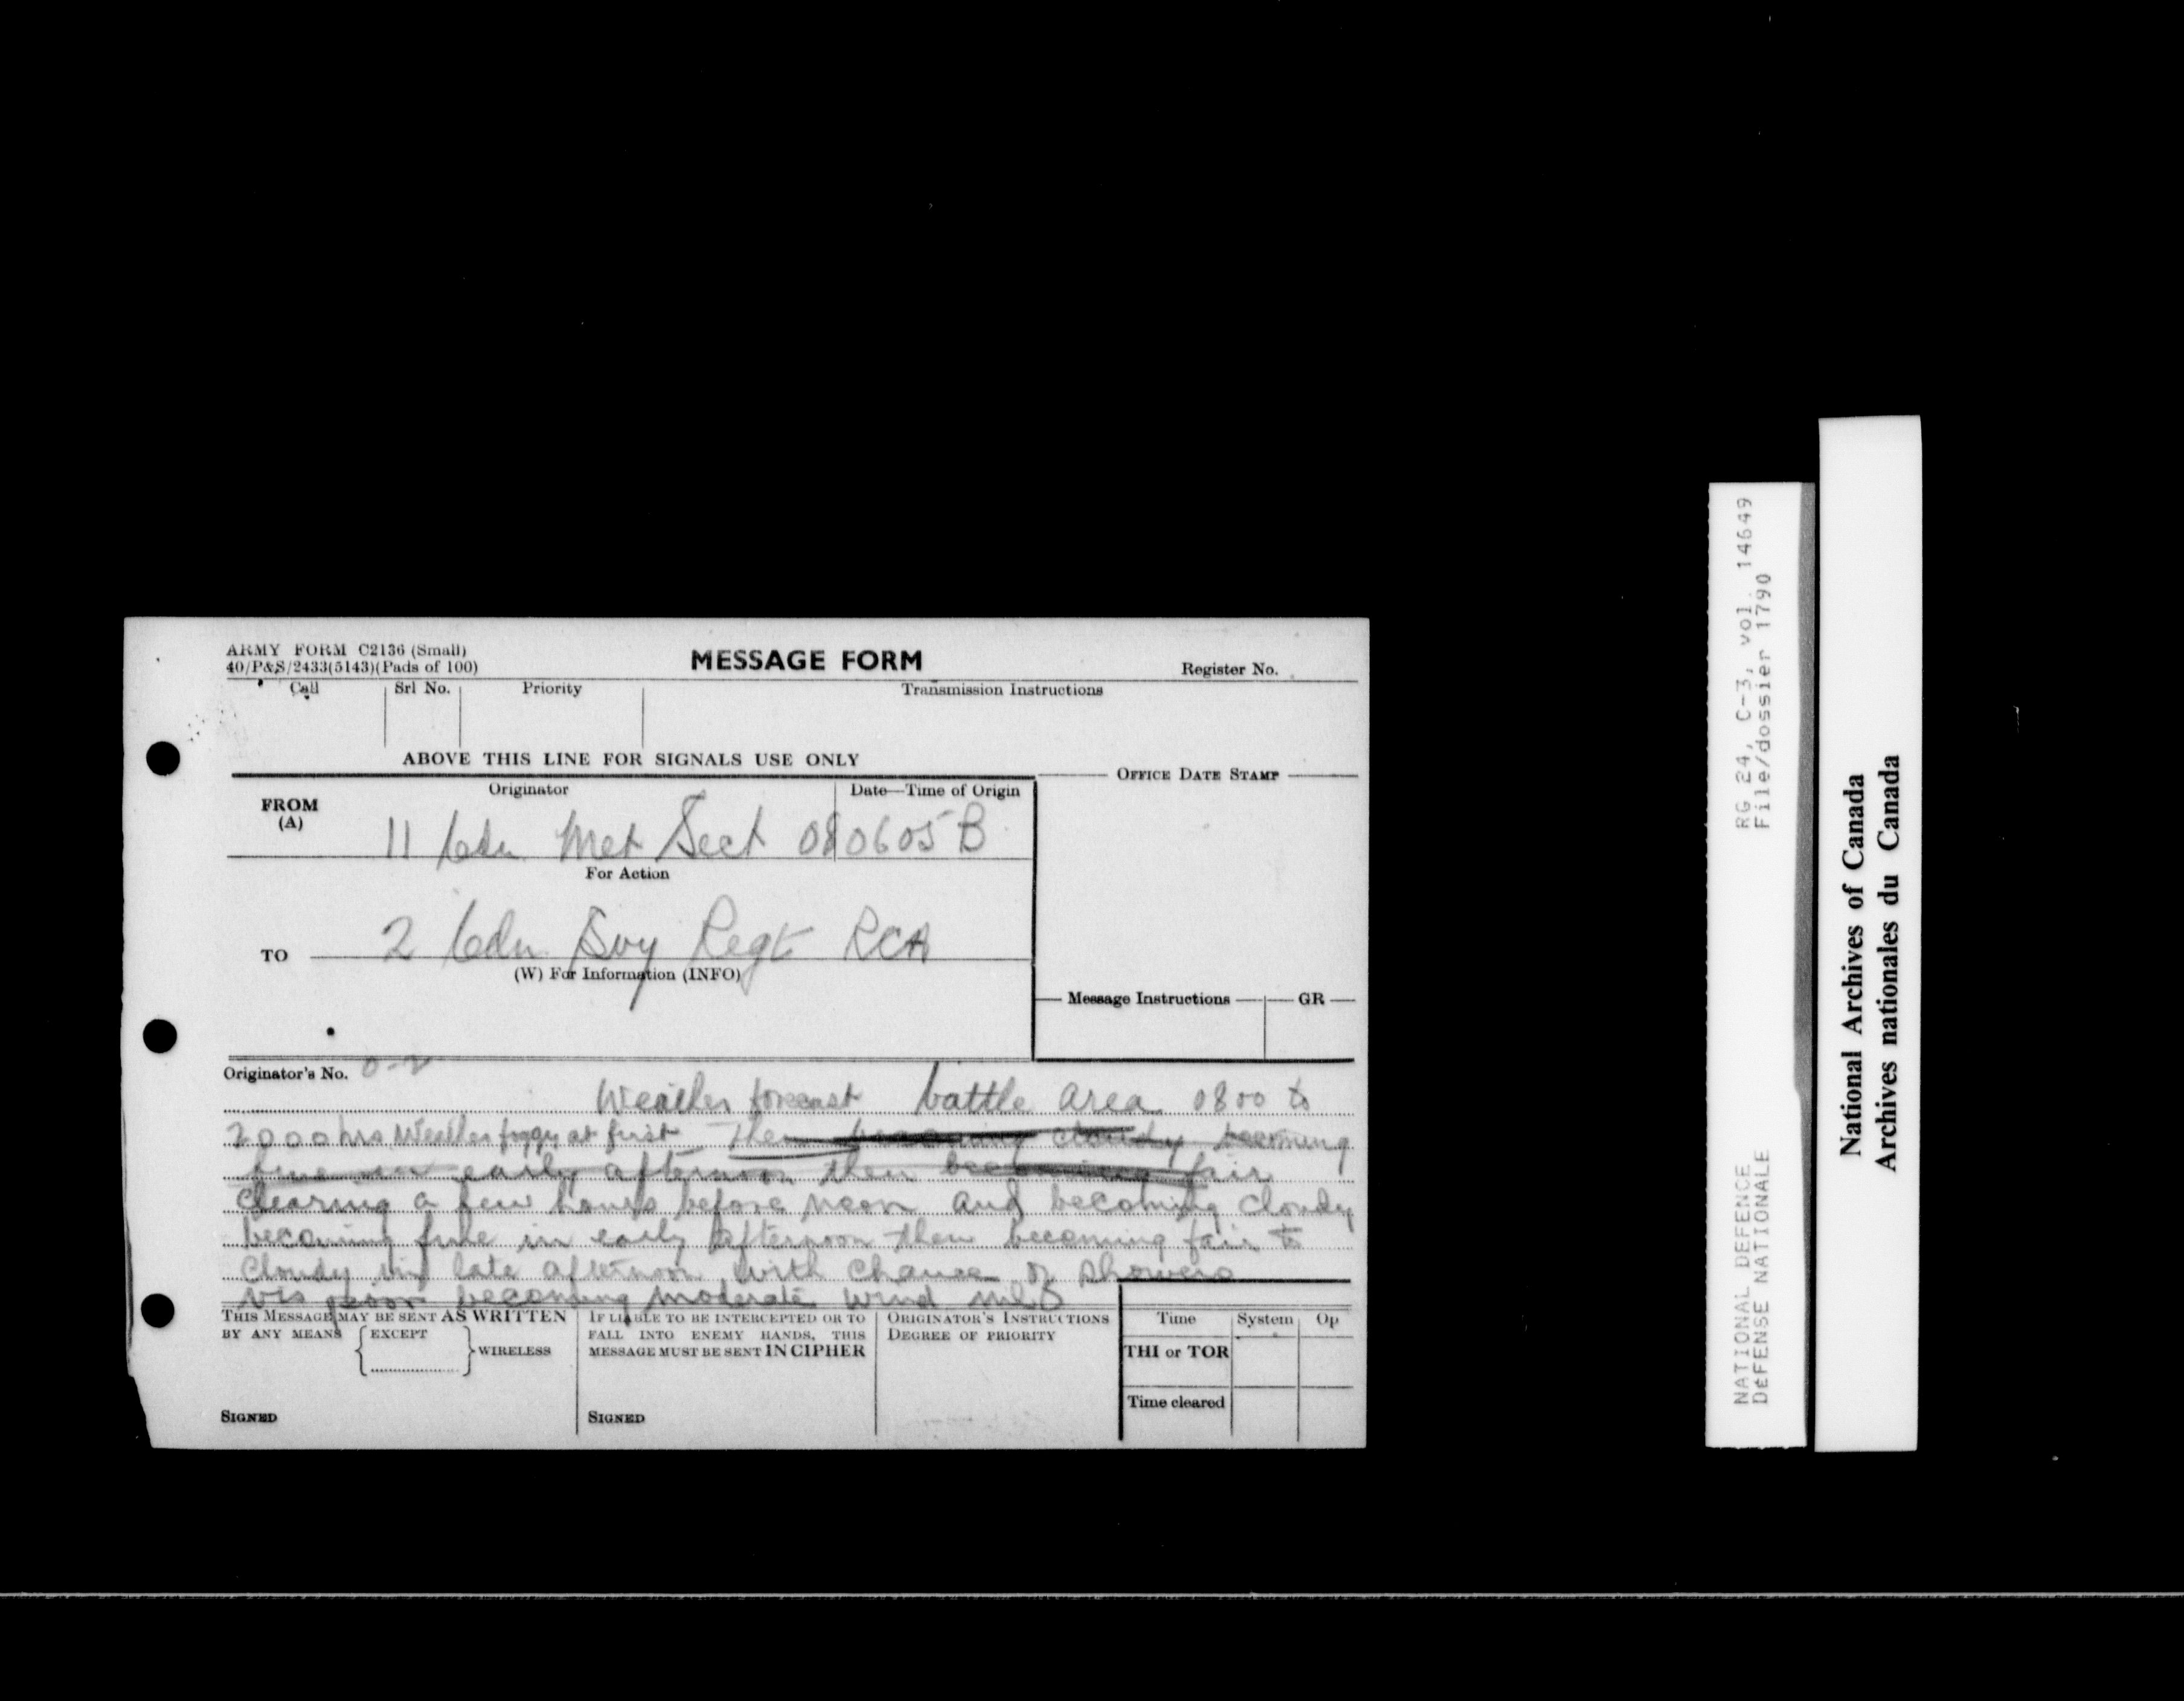 ARMY FORM C2136 (Small)
40/P&S/2433(5143)(Pads of 100)
MESSAGE FORM
Register No.
Call Srl No. Priority Transmission Instructions
ABOVE THIS LINE FOR SIGNALS USE ONLY
OFFICE DATE STAMP
Originator Date—Time of Origin
FROM
(A)
11 Cdn Met Sect 080605 B
For Action
TO 2 Cdn Svy Regt RCA
(W) For Information (INFO)
Message Instructions GR
Originator's No. 0-2
Weather forecast battle area 0800 to
2000 hrs Weather foggy at first Then becoming cloudy becoming
fine in early afternoon then becoming fair
clearing a few hours before noon and becoming cloudy
becoming fine in early afternoon then becoming fair to
cloudy in late afternoon with chance of showers
vis poor becoming moderate wind
THIS MESSAGE MAY BE SENT AS WRITTEN
BY ANY MEANS { EXCEPT
.................. } WIRELESS
SIGNED
IF LIABLE TO BE INTERCEPTED OR TO
FALL INTO ENEMY HANDS, THIS
MESSAGE MUST BE SENT IN CIPHER
SIGNED
ORIGINATOR'S INSTRUCTIONS
DEGREE OF PRIORITY
Time System Op
THI or TOR
Time cleared
NATIONAL DEFENCE RG 24, C-3, vol. 14649
DEFENSE NATIONALE File/dossier 1790
National Archives of Canada
Archives nationales du Canada